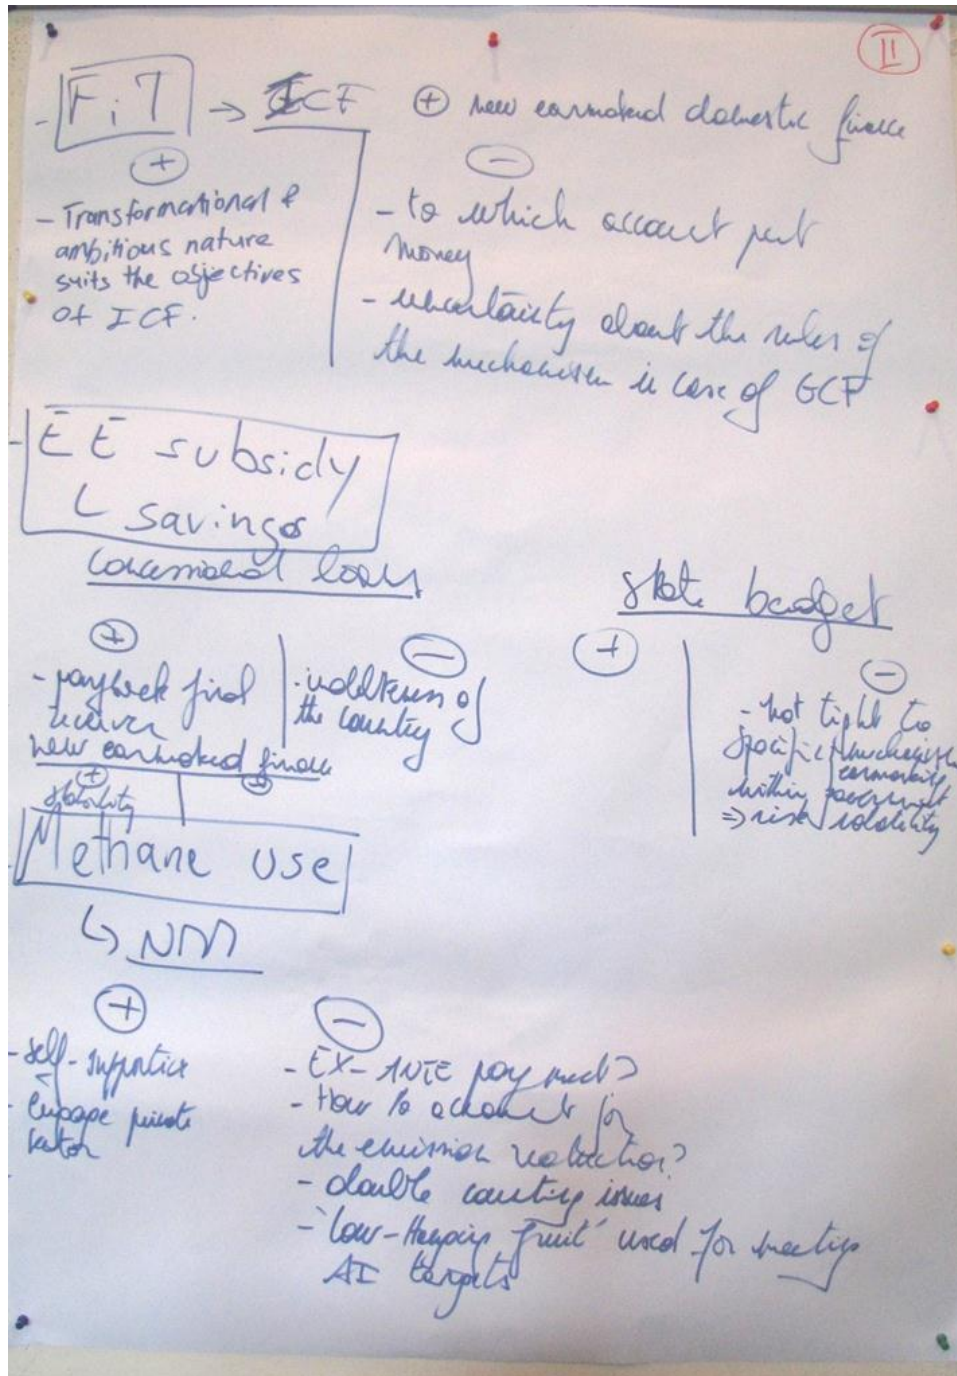 II
- FiT → ICF ⊕ new earmarked domestic finance
+
- Transformational &
ambitious nature
suits the objectives
of ICF.
-
- to which account put
money
- uncertainty about the rules of
the mechanism in case of GCF
- EE subsidy
savings
concessional loans
+
- payback final
receiver
new earmarked finance
-
- indebtness of
the country
+
stability
-
state budget
+
-
- not tight to
specific mechanism
earmarking
within government
=> risk volatility
Methane use
↳ NM
+
- self-supportive
- engage private
sector
-
- EX-ANTE payment?
- How to account for
the emission reduction?
- double counting issues
- 'low-Hanging fruit' used for meeting
AI targets